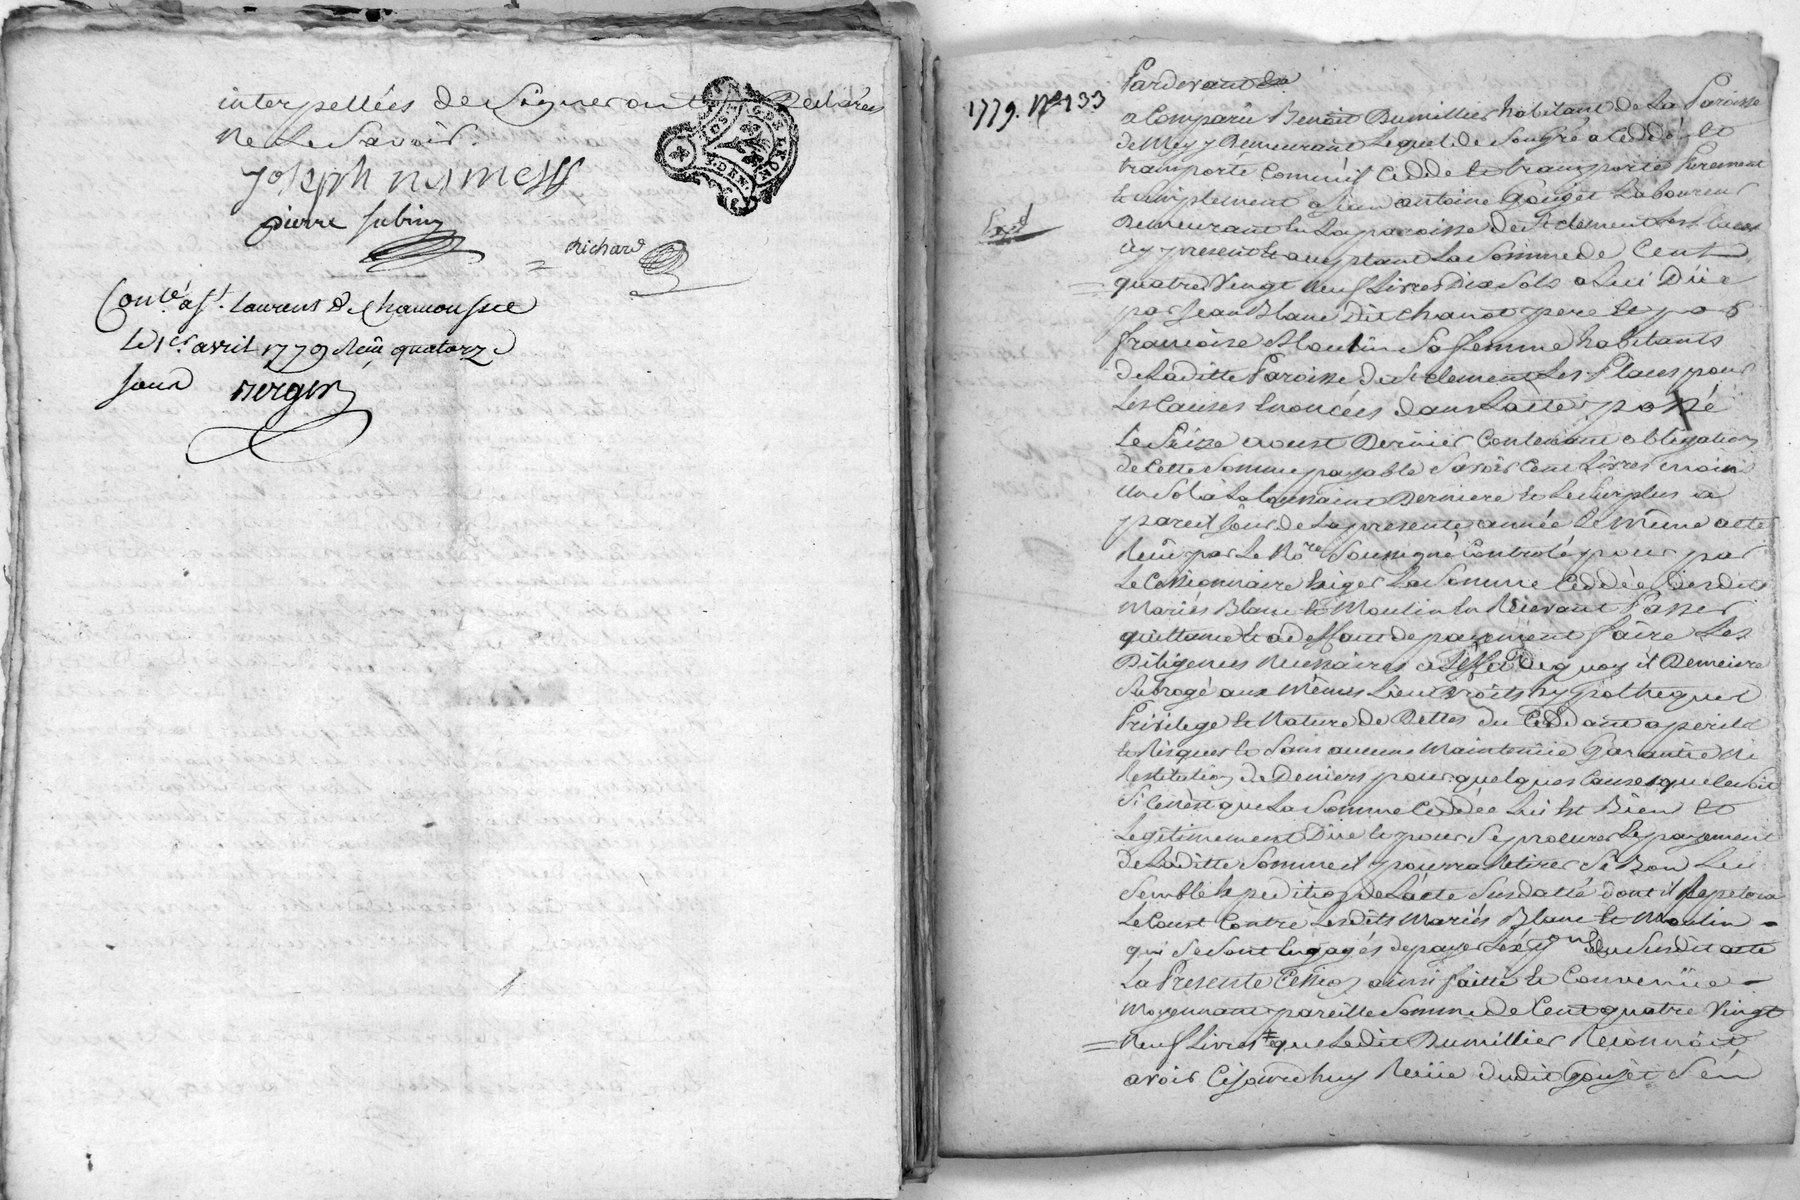 interpellées de signer ont Declarés
Ne Le Savoir.
joseph
pierre subrin
Richard
Con.lé a St. Laurent de Chamousset
Le 1er avril 1779 Reçu quatorze
sous verger
Pardevant &a
1779. No. 133
a Comparû Benoît Dumillier habitant de La Paroisse
de Meys y Demeurant Lequel de Son gré a Ceddé et
transporté Comme il Cedde et transporte Purement
et simplement a Sieur antoine Gouget Laboureur
Exp.d
Demeurant en La paroisse de St. clement Les places
icy present et acceptant La Somme de Cent
quatre Vingt neuf Livres Dix Sols a Lui Düe
par Jean Blanc Dit chanot pere et par
françoise Moulin Sa femme habitants
de La ditte Paroisse de St. clement Les Places pour
Les Causes Enoncées dans L'acte passé
Le Seize aoust Dernier Contenant obligation
de Cette Somme payable Savoir Cent Livres moins
un Sol à La toussaint Derniere et Le Surplus a
pareil Jour de La presente année Le même acte
Reçu par Le No.re Soussigné Controlé pour par
Le Cessionnaire Exiger La Somme Ceddée Desdits
Mariés Blanc et Moulin En Recevant Passer
quittance et a deffaut de payement faire Les
Diligences Necessaires a L'effet de quoy il Demeure
Subrogé aux Mêmes Lieu Droits hypotheques
Privilege et Nature de Dettes du Ceddant a perils
et Risques et Sans aucune Maintenüe Garantie Ni
Restitution de Deniers pour quelques Causes que ce Soit
Si Ce n'est que La Somme Ceddée Lui Est Bien et
Legitimement Düe et pour Se procurer Le payement
de La ditte Somme il pourra Retirer Si Bon Lui
Semble Expedition de L'acte Susdatté dont il Repetera
Le Coust Contre Lesdits Mariés Blanc et Moulin
qui Se Sont Engagés de payer L'exp.on du Susdit acte
La Presente Cession ainsi faitte et Convenüe
Moyennant pareille Somme de Cent quatre Vingt
Neuf Livres que Le dit Dumillier Reconnoit
avoir Cejourd'huy Reçüe dudit Gouget S'en